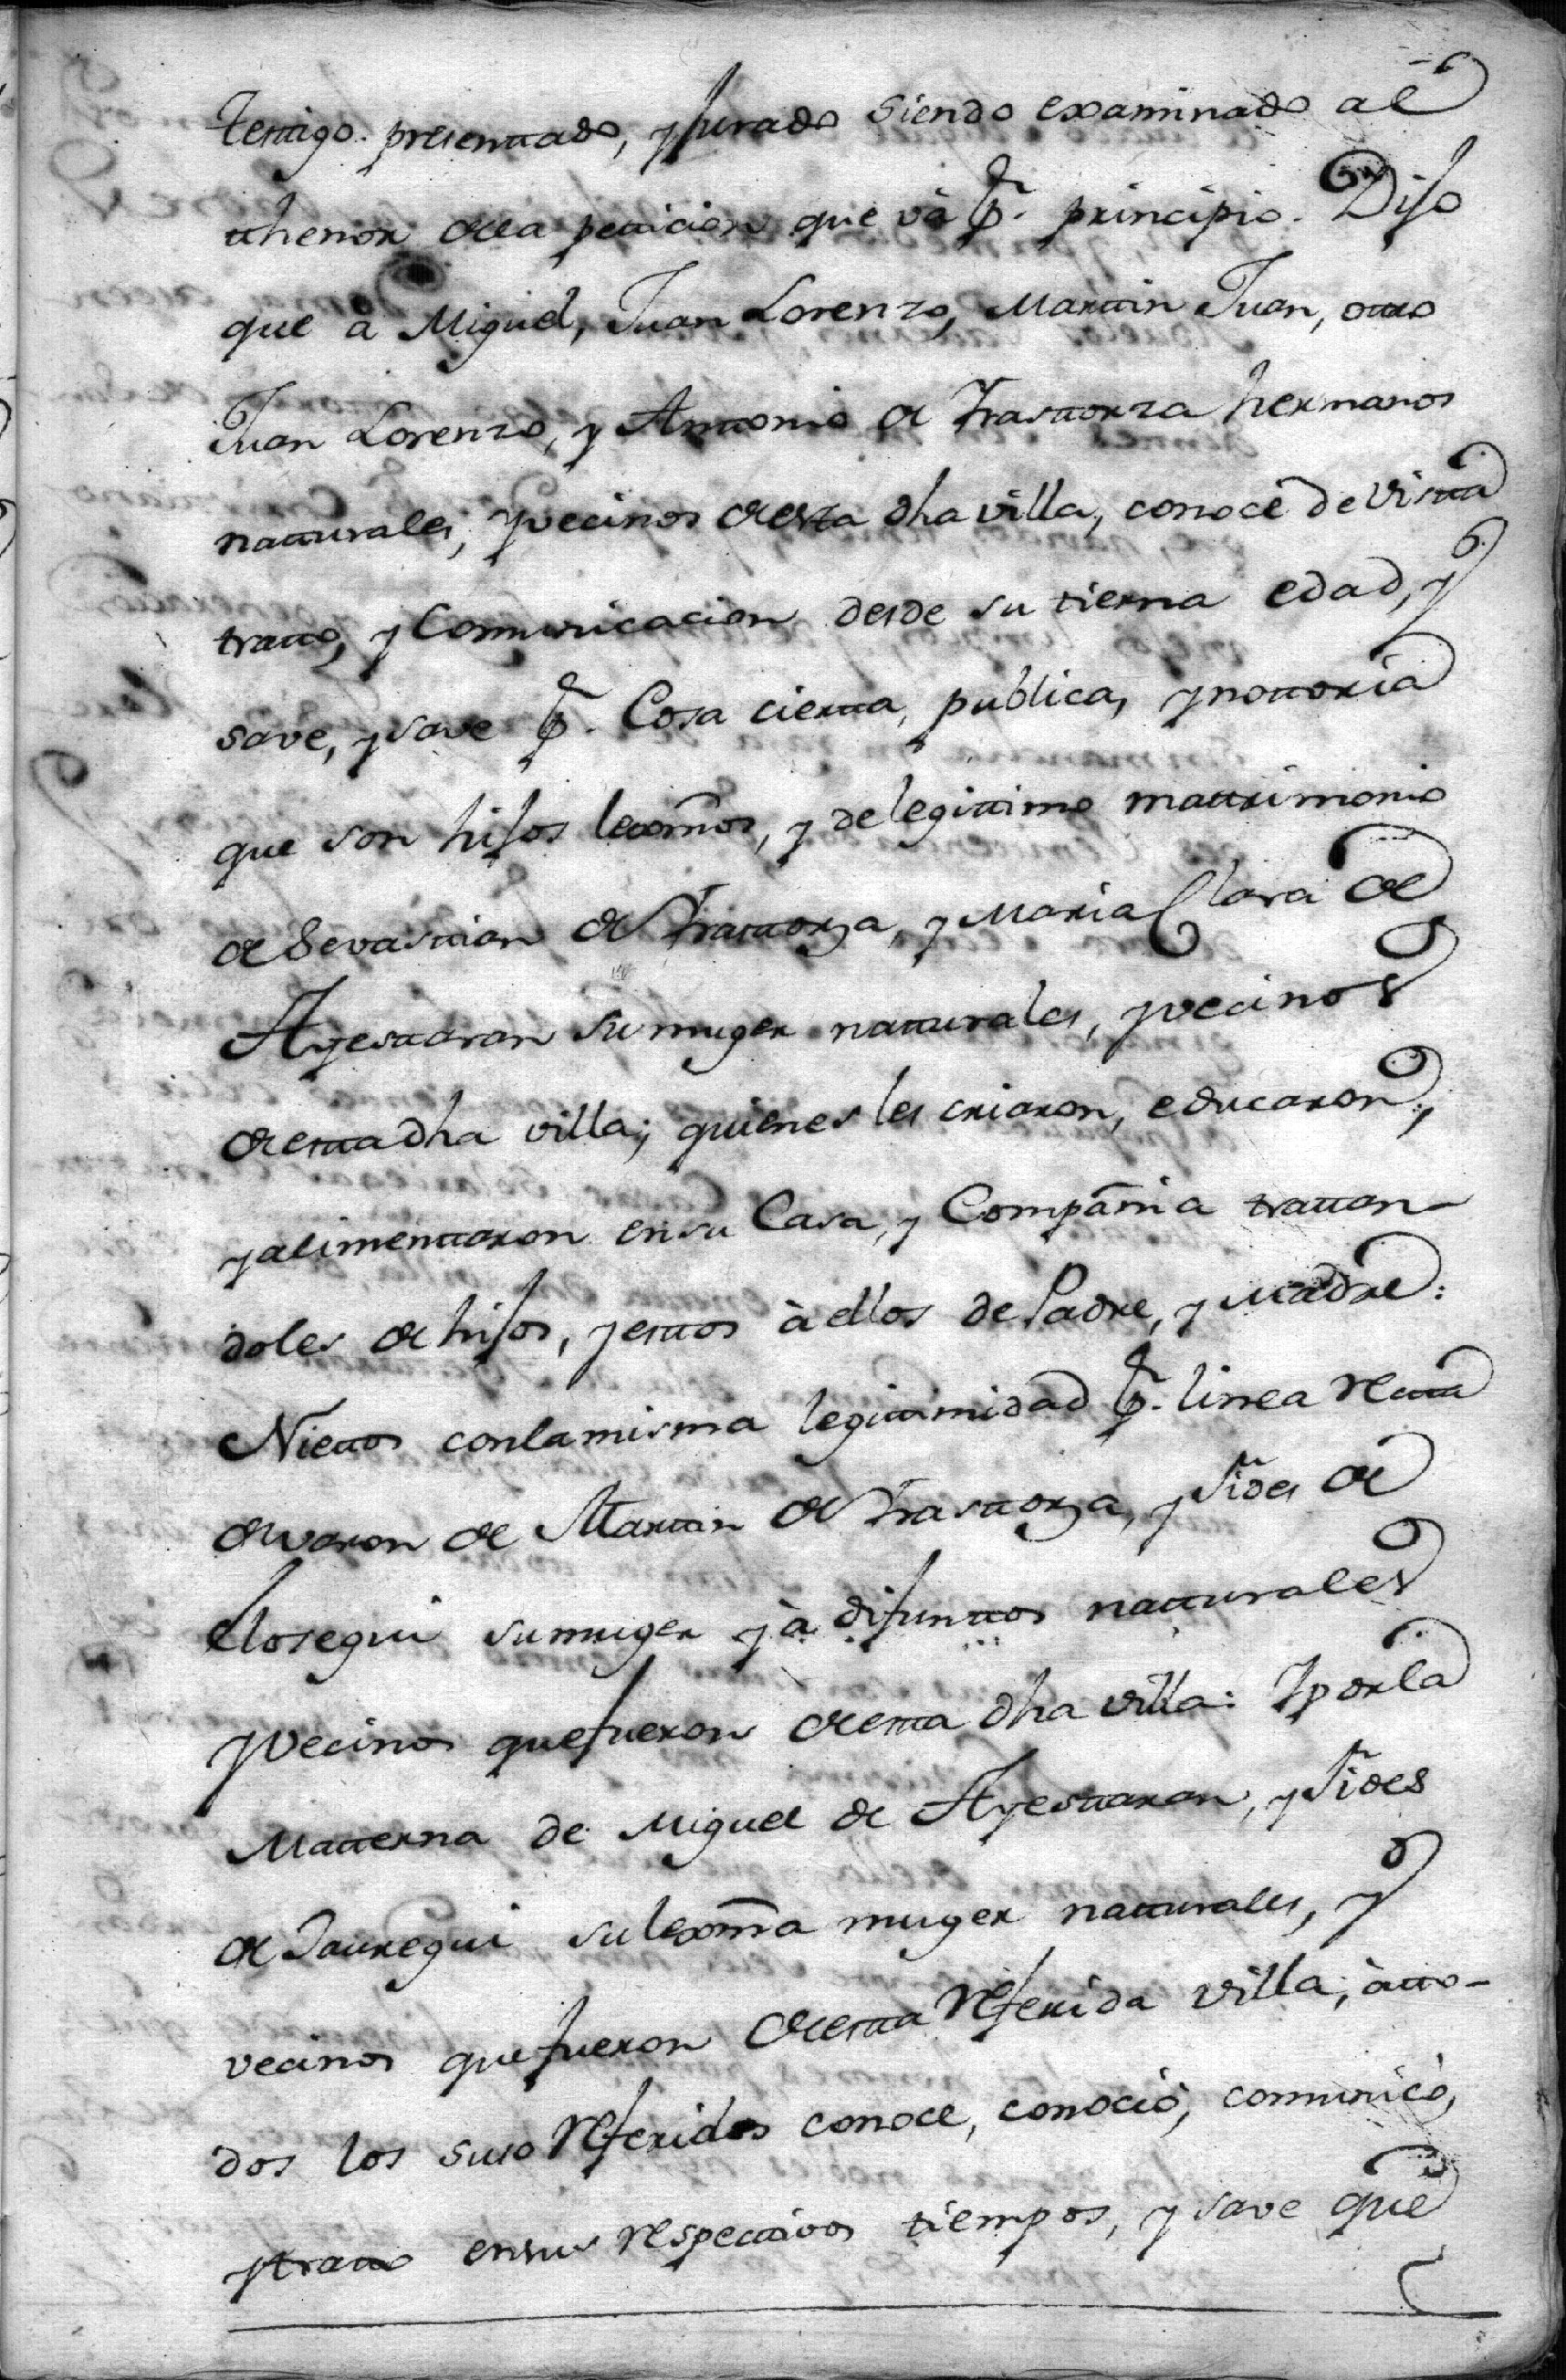 testigo. presenttado, y Jurado siendo examinado al
thenor dela petticion que và pr. principio. Dijo
que à Miguel, Juan Lorenzo, Marttin Juan, otro
Juan Lorenzo, y Anttonio de Trasttorza hermanos
natturales, y vecinos de esta dha villa, conoce de vistta
tratto, y Comunicacion desde su tierna edad, y
save, y save pr. Cosa cierta, publica, y nottoria
que son hijos lexmos, y de legittimo mattrimonio
de Sevasttian de Trasttorza, y Maria Clara de
Ayesttaran su muger natturales, y vecinos
de estta dha villa; quienes les criaron, educaron,
y alimenttaron en su Casa, y Compãnia trattan-
doles de hijos, y esttos à ellos de Padre, y Madre:
Niettos con la misma legittimidad pr. linea rectta
de varon de Marttin de Trasttorza, y
Elosegui su muger yà difunttos natturales
y vecinos que fueron de estta dha villa: Y por la
Matterna de Miguel de Ayesttaran, y
de Jauregui su lexma muger natturales, y
vecinos que fueron de estta referida villa; à tto-
dos los suso referidos conoce, conociò, comunicò,
y tratto en sus respecttivos tiempos, y save que